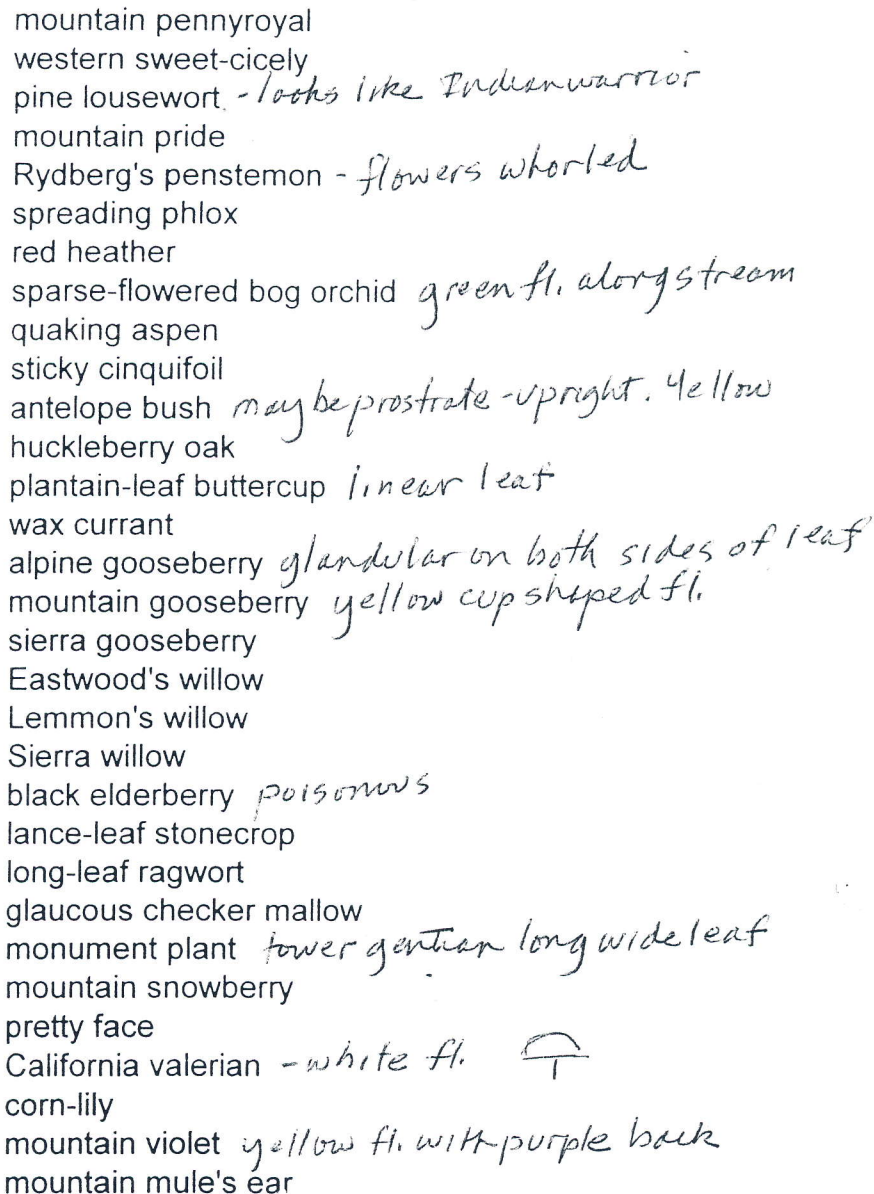 mountain pennyroyal
western sweet-cicely
pine lousewort - looks like Indian warrior
mountain pride
Rydberg's penstemon - flowers whorled
spreading phlox
red heather
sparse-flowered bog orchid green fl. along stream
quaking aspen
sticky cinquifoil
antelope bush may be prostrate - upright. Yellow
huckleberry oak
plantain-leaf buttercup linear leaf
wax currant
alpine gooseberry glandular on both sides of leaf
mountain gooseberry yellow cup shaped fl.
sierra gooseberry
Eastwood's willow
Lemmon's willow
Sierra willow
black elderberry poisonous
lance-leaf stonecrop
long-leaf ragwort
glaucous checker mallow
monument plant tower gentian long wide leaf
mountain snowberry
pretty face
California valerian - white fl.
corn-lily
mountain violet yellow fl. with purple back
mountain mule's ear